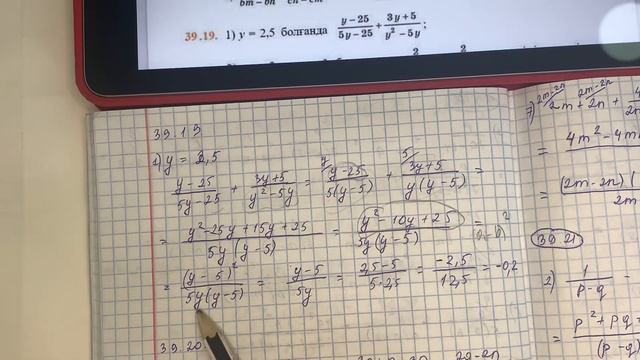 bm − bn cn − cm
39.19. 1) y = 2,5 болғанда (y−25)/(5y−25) + (3y+5)/(y²−5y);
39.19
1) y = 2,5
(y−25)/(5y−25) + (3y+5)/(y²−5y) = ʸ⁄ (y−25)/(5(y−5)) + ⁵⁄ (3y+5)/(y(y−5)) =
= (y²−25y+15y+25)/(5y(y−5)) = (y²−10y+25)/(5y(y−5)) = (a−b)²
= (y−5)²/(5y(y−5)) = (y−5)/(5y) = (2,5−5)/(5·2,5) = (−2,5)/(12,5) = −0,2
39.20.
7) 2m−2n 2m−2n
2m+2n
= 4m²−4m
= (2m−2n)(
2m
39.21
2) 1/(p−q) −
= p²+pq
(p−q)